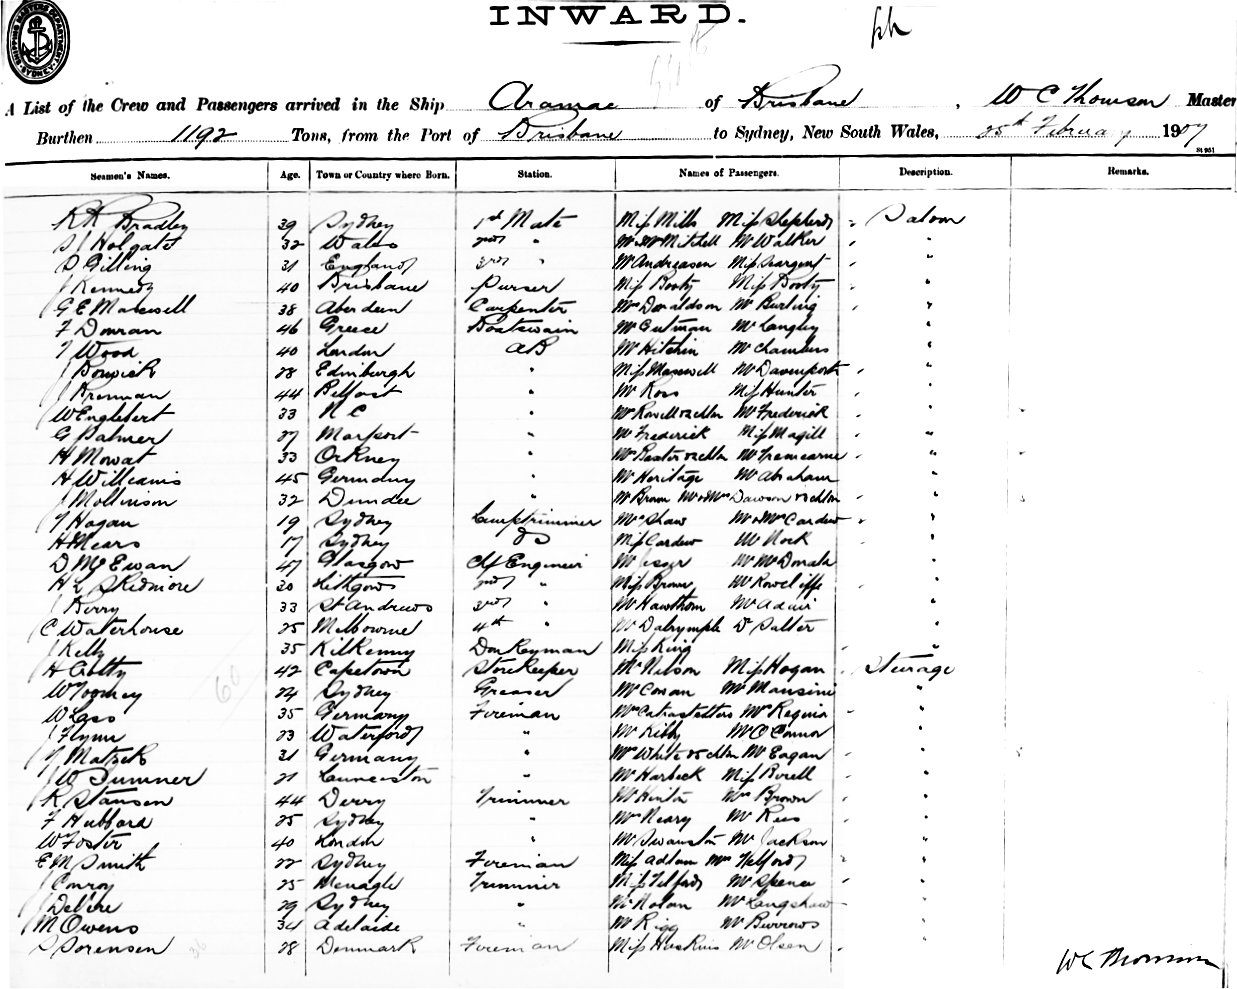 SHIPPING MASTERS DEPARTMENT SYDNEY
INWARD.
A List of the Crew and Passengers arrived in the Ship Aramac of Brisbane, W C Thomson Master
Burthen 1192 Tons, from the Port of Brisbane to Sydney, New South Wales, 25th February 1907
St 951
Seamen's Names. Age. Town or Country where Born. Station. Names of Passengers. Description. Remarks.
Bradley 39 Sydney 1st Mate Miss Mills Miss Shepherd " Saloon
Holgate 32 Wales 2nd " Mr & Mrs Mitchell Mr Walker "
Gilling 31 England 3rd " Mr Andreasen Miss Sargent "
J Kennedy 40 Brisbane Purser Miss Booty Miss Booty "
G E Maxwell 38 Aberdeen Carpenter Mrs Donaldson Mr Burling "
F Douran 46 Greece Boatswain Mr Cutman Mr Langley "
T Wood 40 London AB Mr Hitchin Mr Chambers "
J Borwick 28 Edinburgh " Miss Maxwell Mr Davenport "
J Brennan 44 Belfast " Mr Ross Miss Hunter "
W Englebert 33 N C " Mrs Rowell & 2 chldn Mr Frederick "
G Palmer 27 Maryport " Mr Frederick Miss Magill "
H Mowat 33 Orkney " Mrs Baxter & 2 chldn Mr Tremearne "
H Williams 45 Germany " Mr Heritage Mr Abraham "
J Mollinson 32 Dundee " Mr Brown Mr & Mrs Dawson & 2 chldn "
T Hogan 19 Sydney Lamptrimmer Mrs Shaw Mr & Mrs Cardew "
H Mears 17 Sydney do Miss Cardew Mr Nock "
D McEwan 47 Glasgow Chf Engineer Mr Mr McDonald "
H L Skidmore 30 Lithgow 2nd " Miss Brown Mr Rowcliffe "
J Berry 33 St Andrews 3rd " Mr Hawthorn Mr Adair "
C Waterhouse 25 Melbourne 4th " Mr Dalrymple Dr Salter "
J Kelly 35 Kilkenny Donkeyman Miss King "
H Crotty 42 Capetown Storekeeper Mr Nelson Miss Hogan " Steerage
W Toomey 24 Sydney Greaser Mr Conan Mr Mansini "
W Lass 35 Germany Fireman Mrs Mr Requin "
J Flynn 23 Waterford " Mr Kibby Mr O'Connor "
T Matzek 31 Germany " Mrs White & 5 chldn Mr Eagan "
J W Sumner 21 Launceston " Mr Harbeck Miss Borell "
R Stausen 44 Derry Trimmer Mr Hinton Mrs Brown "
F Hubbard 25 Sydney " Mrs Neary Mr Rees "
W Foster 40 London " Mr Swanston Mr Jackson "
E M Smith 22 Sydney Fireman Miss Adlam Mrs Telford "
J Conroy 25 Menagle Trimmer Miss Telford Mr Spence "
J DeVere 29 Sydney " Mr Nolan Mr Langshaw "
M Owens 34 Adelaide " Mr Rigg Mr Burrows "
S Sorensen 28 Denmark Fireman Miss Huskins Mr Olsen "
W C Thomson